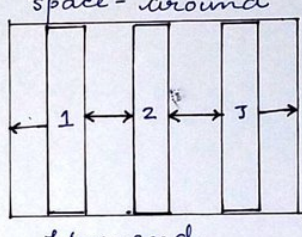 space-around
1 2 3